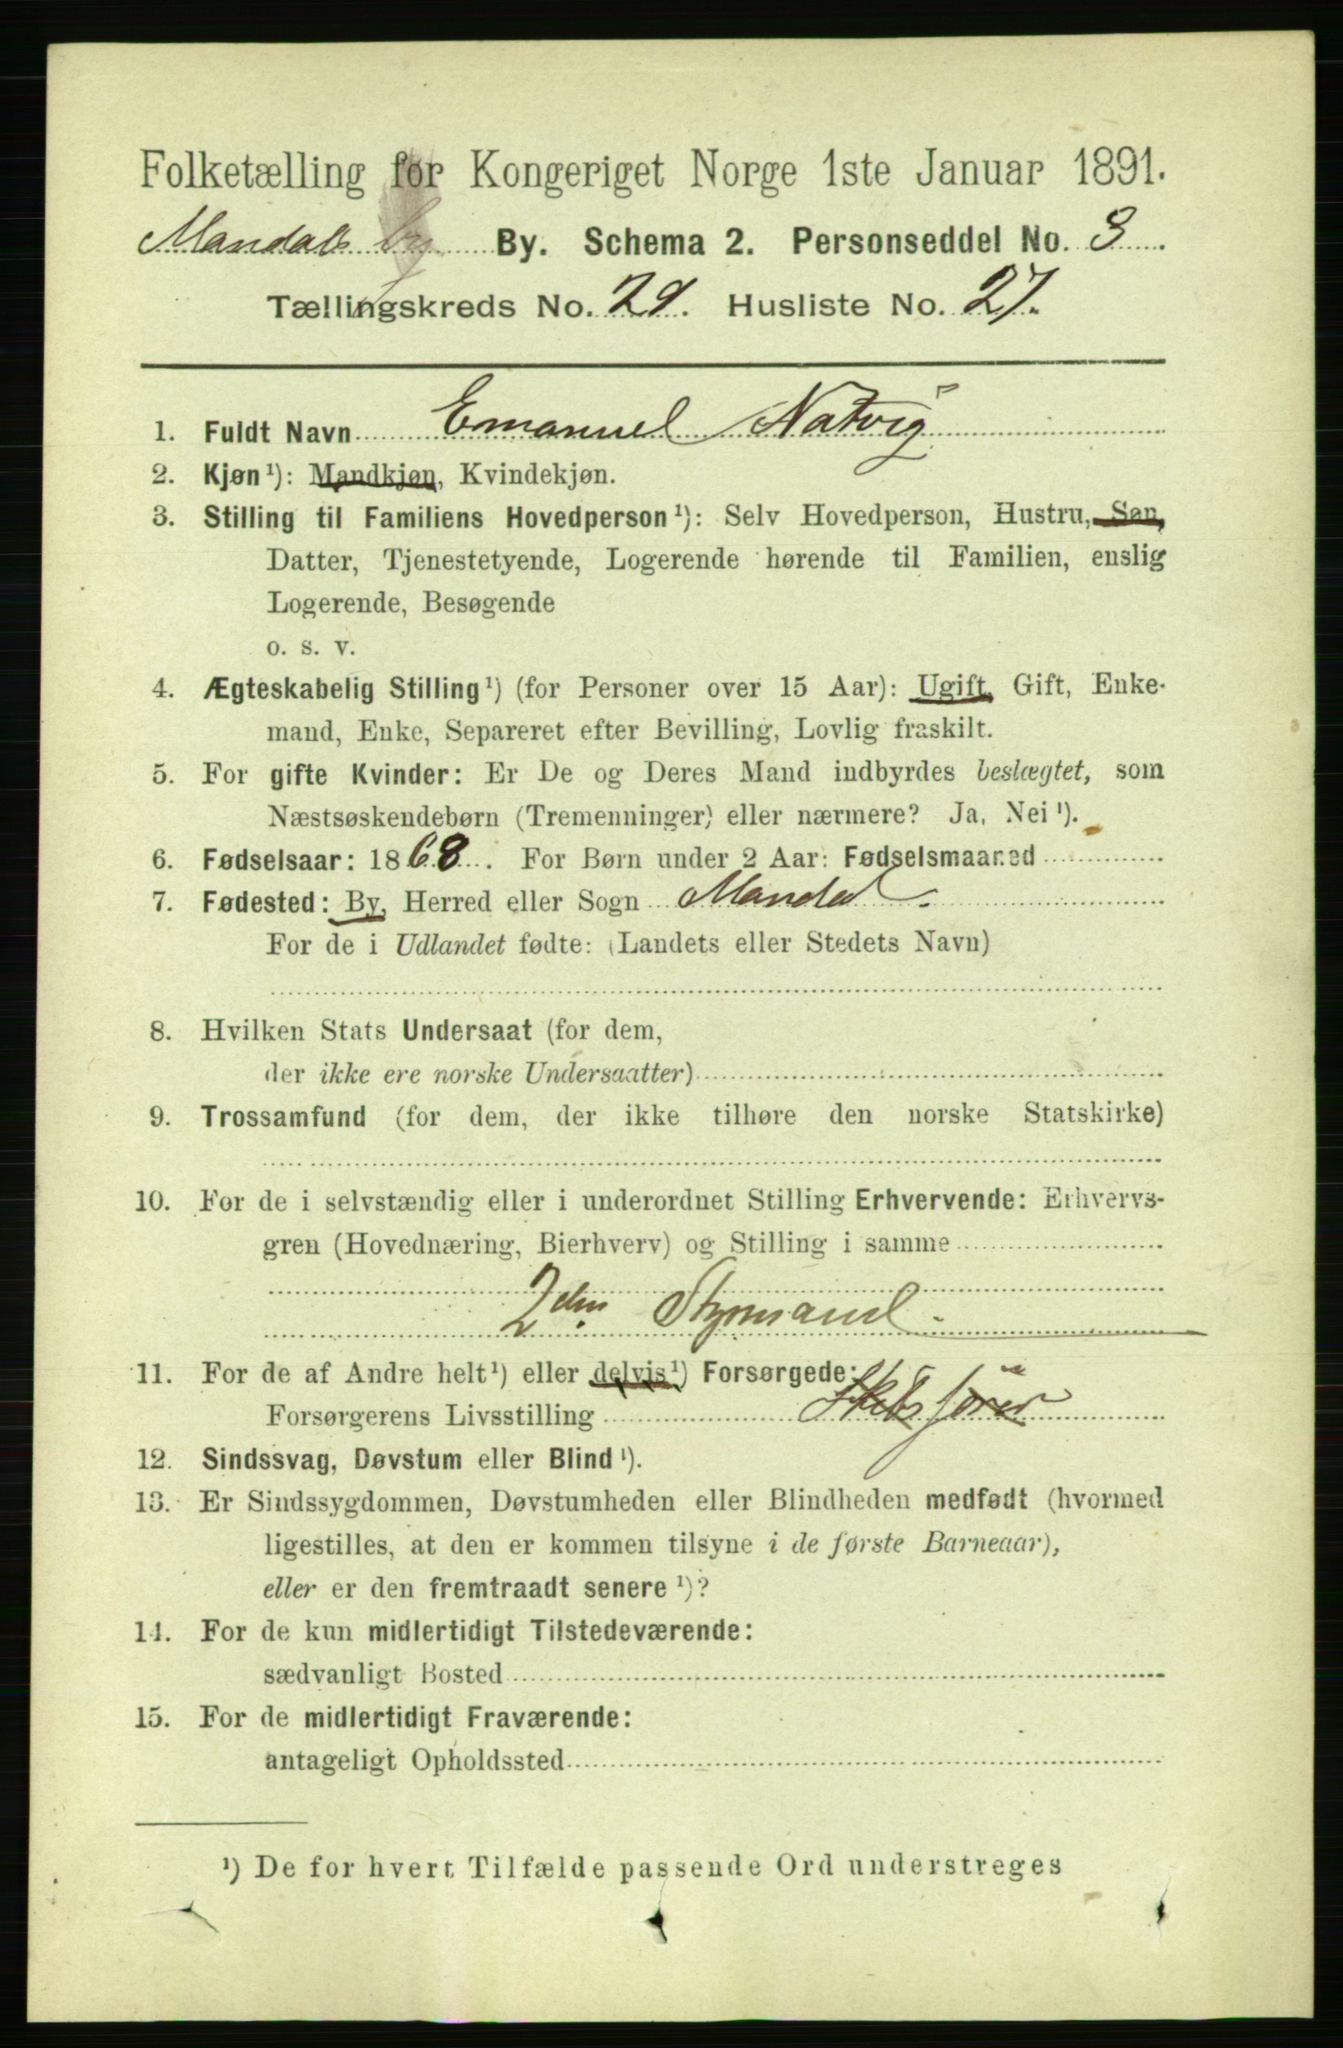 Folketælling for Kongeriget Norge 1ste Januar 1891.
Mandals by By. Schema 2. Personseddel No. 3.
Tællingskreds No. 29. Husliste No. 27.
1. Fuldt Navn Emanuel Natvig
2. Kjøn¹): Mandkjøn, Kvindekjøn.
3. Stilling til Familiens Hovedperson¹): Selv Hovedperson, Hustru, Søn,
Datter, Tjenestetyende, Logerende hørende til Familien, enslig
Logerende, Besøgende
o. s. v.
4. Ægteskabelig Stilling¹) (for Personer over 15 Aar): Ugift, Gift, Enke-
mand, Enke, Separeret efter Bevilling, Lovlig fraskilt.
5. For gifte Kvinder: Er De og Deres Mand indbyrdes beslægtet, som
Næstsøskendebørn (Tremenninger) eller nærmere? Ja, Nei¹).
6. Fødselsaar: 1868. For Børn under 2 Aar: Fødselsmaaned
7. Fødested: By, Herred eller Sogn Mandal.
For de i Udlandet fødte: (Landets eller Stedets Navn)
8. Hvilken Stats Undersaat (for dem,
der ikke ere norske Undersaatter)
9. Trossamfund (for dem, der ikke tilhøre den norske Statskirke)
10. For de i selvstændig eller i underordnet Stilling Erhvervende: Erhvervs-
gren (Hovednæring, Bierhverv) og Stilling i samme
2den Styrmand.
11. For de af Andre helt¹) eller delvis¹) Forsørgede:
Forsørgerens Livsstilling Skibsfører
12. Sindssvag, Døvstum eller Blind¹).
13. Er Sindssygdommen, Døvstumheden eller Blindheden medfødt (hvormed
ligestilles, at den er kommen tilsyne i de første Barneaar),
eller er den fremtraadt senere¹)?
14. For de kun midlertidigt Tilstedeværende:
sædvanligt Bosted
15. For de midlertidigt Fraværende:
antageligt Opholdssted
¹) De for hvert Tilfælde passende Ord understreges